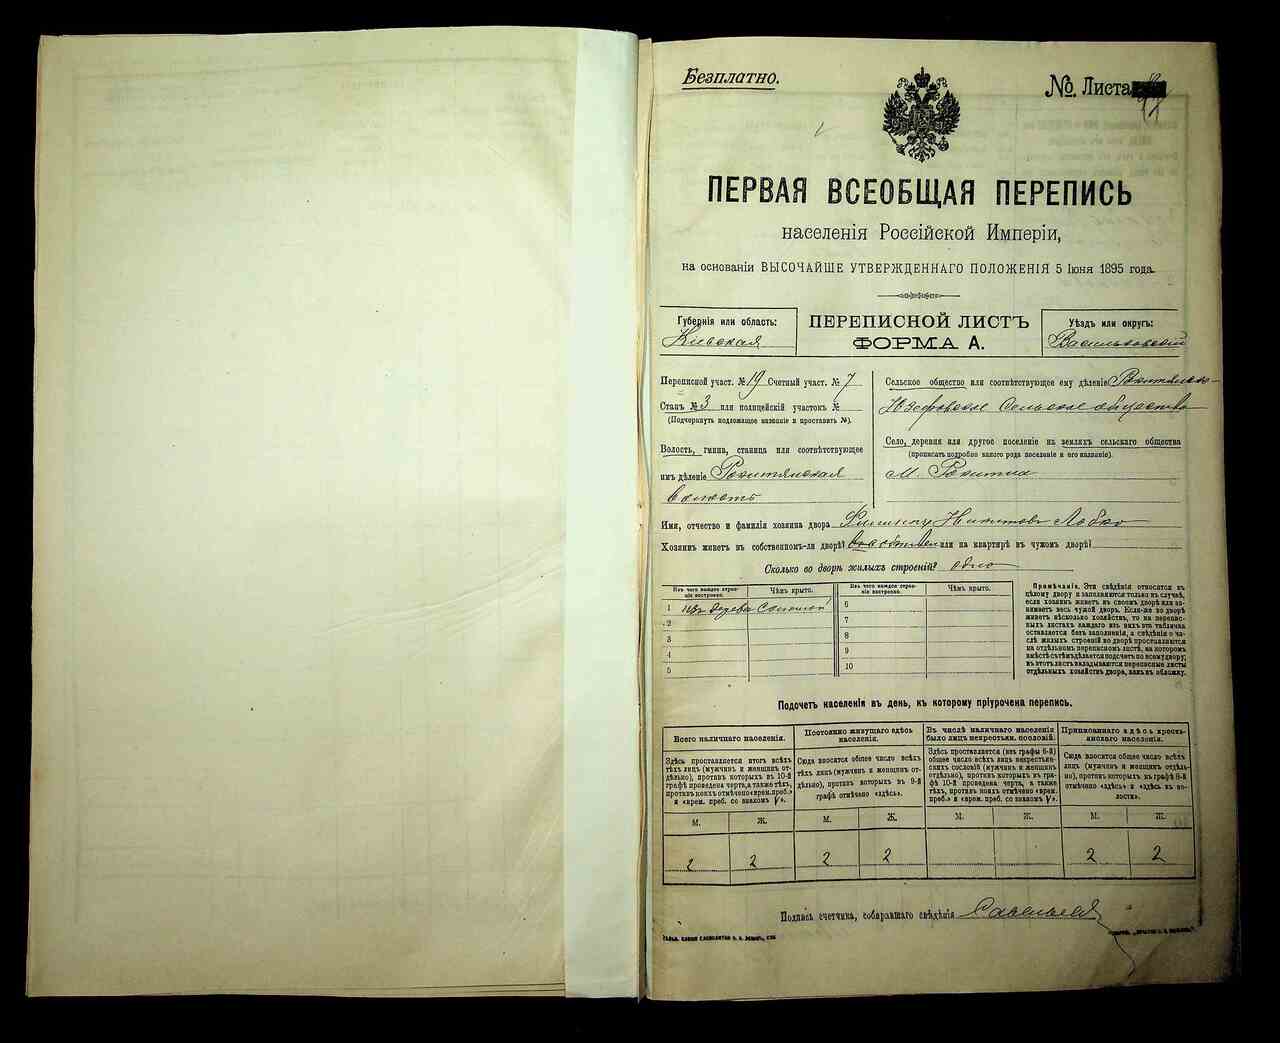 Безплатно.
№. Листа
ПЕРВАЯ ВСЕОБЩАЯ ПЕРЕПИСЬ
населенія Россійской Имперіи,
на основаніи ВЫСОЧАЙШЕ УТВЕРЖДЕННАГО ПОЛОЖЕНІЯ 5 Іюня 1895 года.
Губернія или область:
Кіевская
ПЕРЕПИСНОЙ ЛИСТЪ
ФОРМА А.
Уѣздъ или округъ:
Васильковскій
Переписной участ. № 19 Счетный участ. № 7
Станъ № 3 или полицейскій участокъ №
(Подчеркнуть подлежащее названіе и проставить №).
Волость, гмина, станица или соотвѣтствующее
имъ дѣленіе Рокитянская
волость
Сельское общество или соотвѣтствующее ему дѣленіе Рокитянско-
Юзефовское Сельское общество
Село, деревня или другое поселеніе на земляхъ сельскаго общества
(прописать подробно какого рода поселеніе и его названіе).
М. Рокитна
Имя, отчество и фамилія хозяина двора Филипъ Никитовъ Лобко
Хозяинъ живетъ въ собственномъ-ли дворѣ? или на квартирѣ въ чужомъ дворѣ?
Сколько во дворѣ жилыхъ строеній? одно
Изъ чего каждое строеніе построено.
Чѣмъ крыто.
1 изъ дерева Соломой
2
3
4
5
Изъ чего каждое строеніе построено.
Чѣмъ крыто.
6
7
8
9
10
Примѣчаніе. Эти свѣдѣнія относятся къ
цѣлому двору и заполняются только въ случаѣ,
если хозяинъ живетъ въ своемъ дворѣ или занимаетъ
весь чужой дворъ. Если-же во дворѣ
живетъ нѣсколько хозяйствъ, то на переписныхъ
листахъ каждаго изъ нихъ эта табличка
оставляется безъ заполненія, а свѣдѣнія о числѣ
жилыхъ строеній во дворѣ проставляются
на отдѣльномъ переписномъ листѣ, на которомъ
вмѣстѣ съ тѣмъ дѣлается подсчетъ по всему двору;
въ этотъ листъ вкладываются переписные листы
отдѣльныхъ хозяйствъ двора, какъ въ обложку.
Подсчетъ населенія въ день, къ которому пріурочена перепись.
Всего наличнаго населенія.
Здѣсь проставляется итогъ всѣхъ
лицъ (мужчинъ и женщинъ отдѣльно),
противъ которыхъ въ 10-й
графѣ проведена черта, а также тѣхъ,
противъ коихъ отмѣчено «врем. преб.»
и «врем. преб. со знакомъ V».
М. Ж.
2 2
Постоянно живущаго здѣсь
населенія.
Сюда вносится общее число всѣхъ
тѣхъ лицъ (мужчинъ и женщинъ отдѣльно),
противъ которыхъ въ 9-й
графѣ отмѣчено «здѣсь».
М. Ж.
2 2
Въ числѣ наличнаго населенія
было лицъ некрестьян. сословій.
Здѣсь проставляется (изъ графы 6-й)
общее число всѣхъ лицъ некрестьянскихъ
сословій (мужчинъ и женщинъ
отдѣльно), противъ которыхъ въ графѣ
10-й проведена черта, а также
тѣхъ, противъ коихъ отмѣчено «врем.
преб.» и «врем. преб. со знакомъ V».
М. Ж.
Приписаннаго здѣсь крестьянскаго
населенія.
Сюда вносится общее число всѣхъ
лицъ (мужчинъ и женщинъ отдѣльно),
противъ которыхъ въ графѣ 8-й
отмѣчено «здѣсь» и «здѣсь въ волости».
М. Ж.
2 2
Подпись счетчика, собиравшаго свѣдѣнія